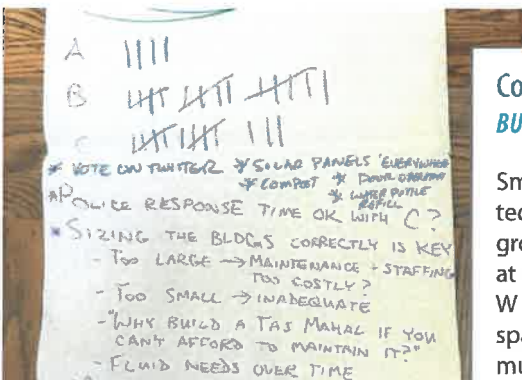 A ||||
B
C
* VOTE ON TWITTER * SOLAR PANELS "EVERYWHERE"
* COMPOST * DOOR OPERATOR
* WATER BOTTLE
REFILL
* POLICE RESPONSE TIME OK WITH C?
* SIZING THE BLDGS CORRECTLY IS KEY
- TOO LARGE → MAINTENANCE + STAFFING
TOO COSTLY?
- TOO SMALL → INADEQUATE
- "WHY BUILD A TAJ MAHAL IF YOU
CAN'T AFFORD TO MAINTAIN IT?"
- FLUID NEEDS OVER TIME
Co
BU
Sm
tec
gro
at
W
spa
mu